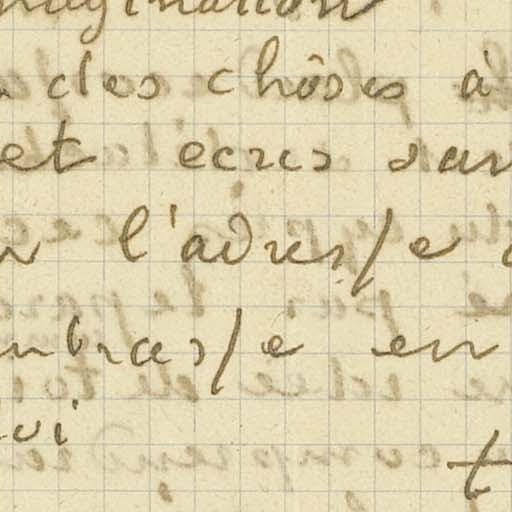 imagination
des chôses à
et ecris san
l'adres/e
mbras/e en
ui
t